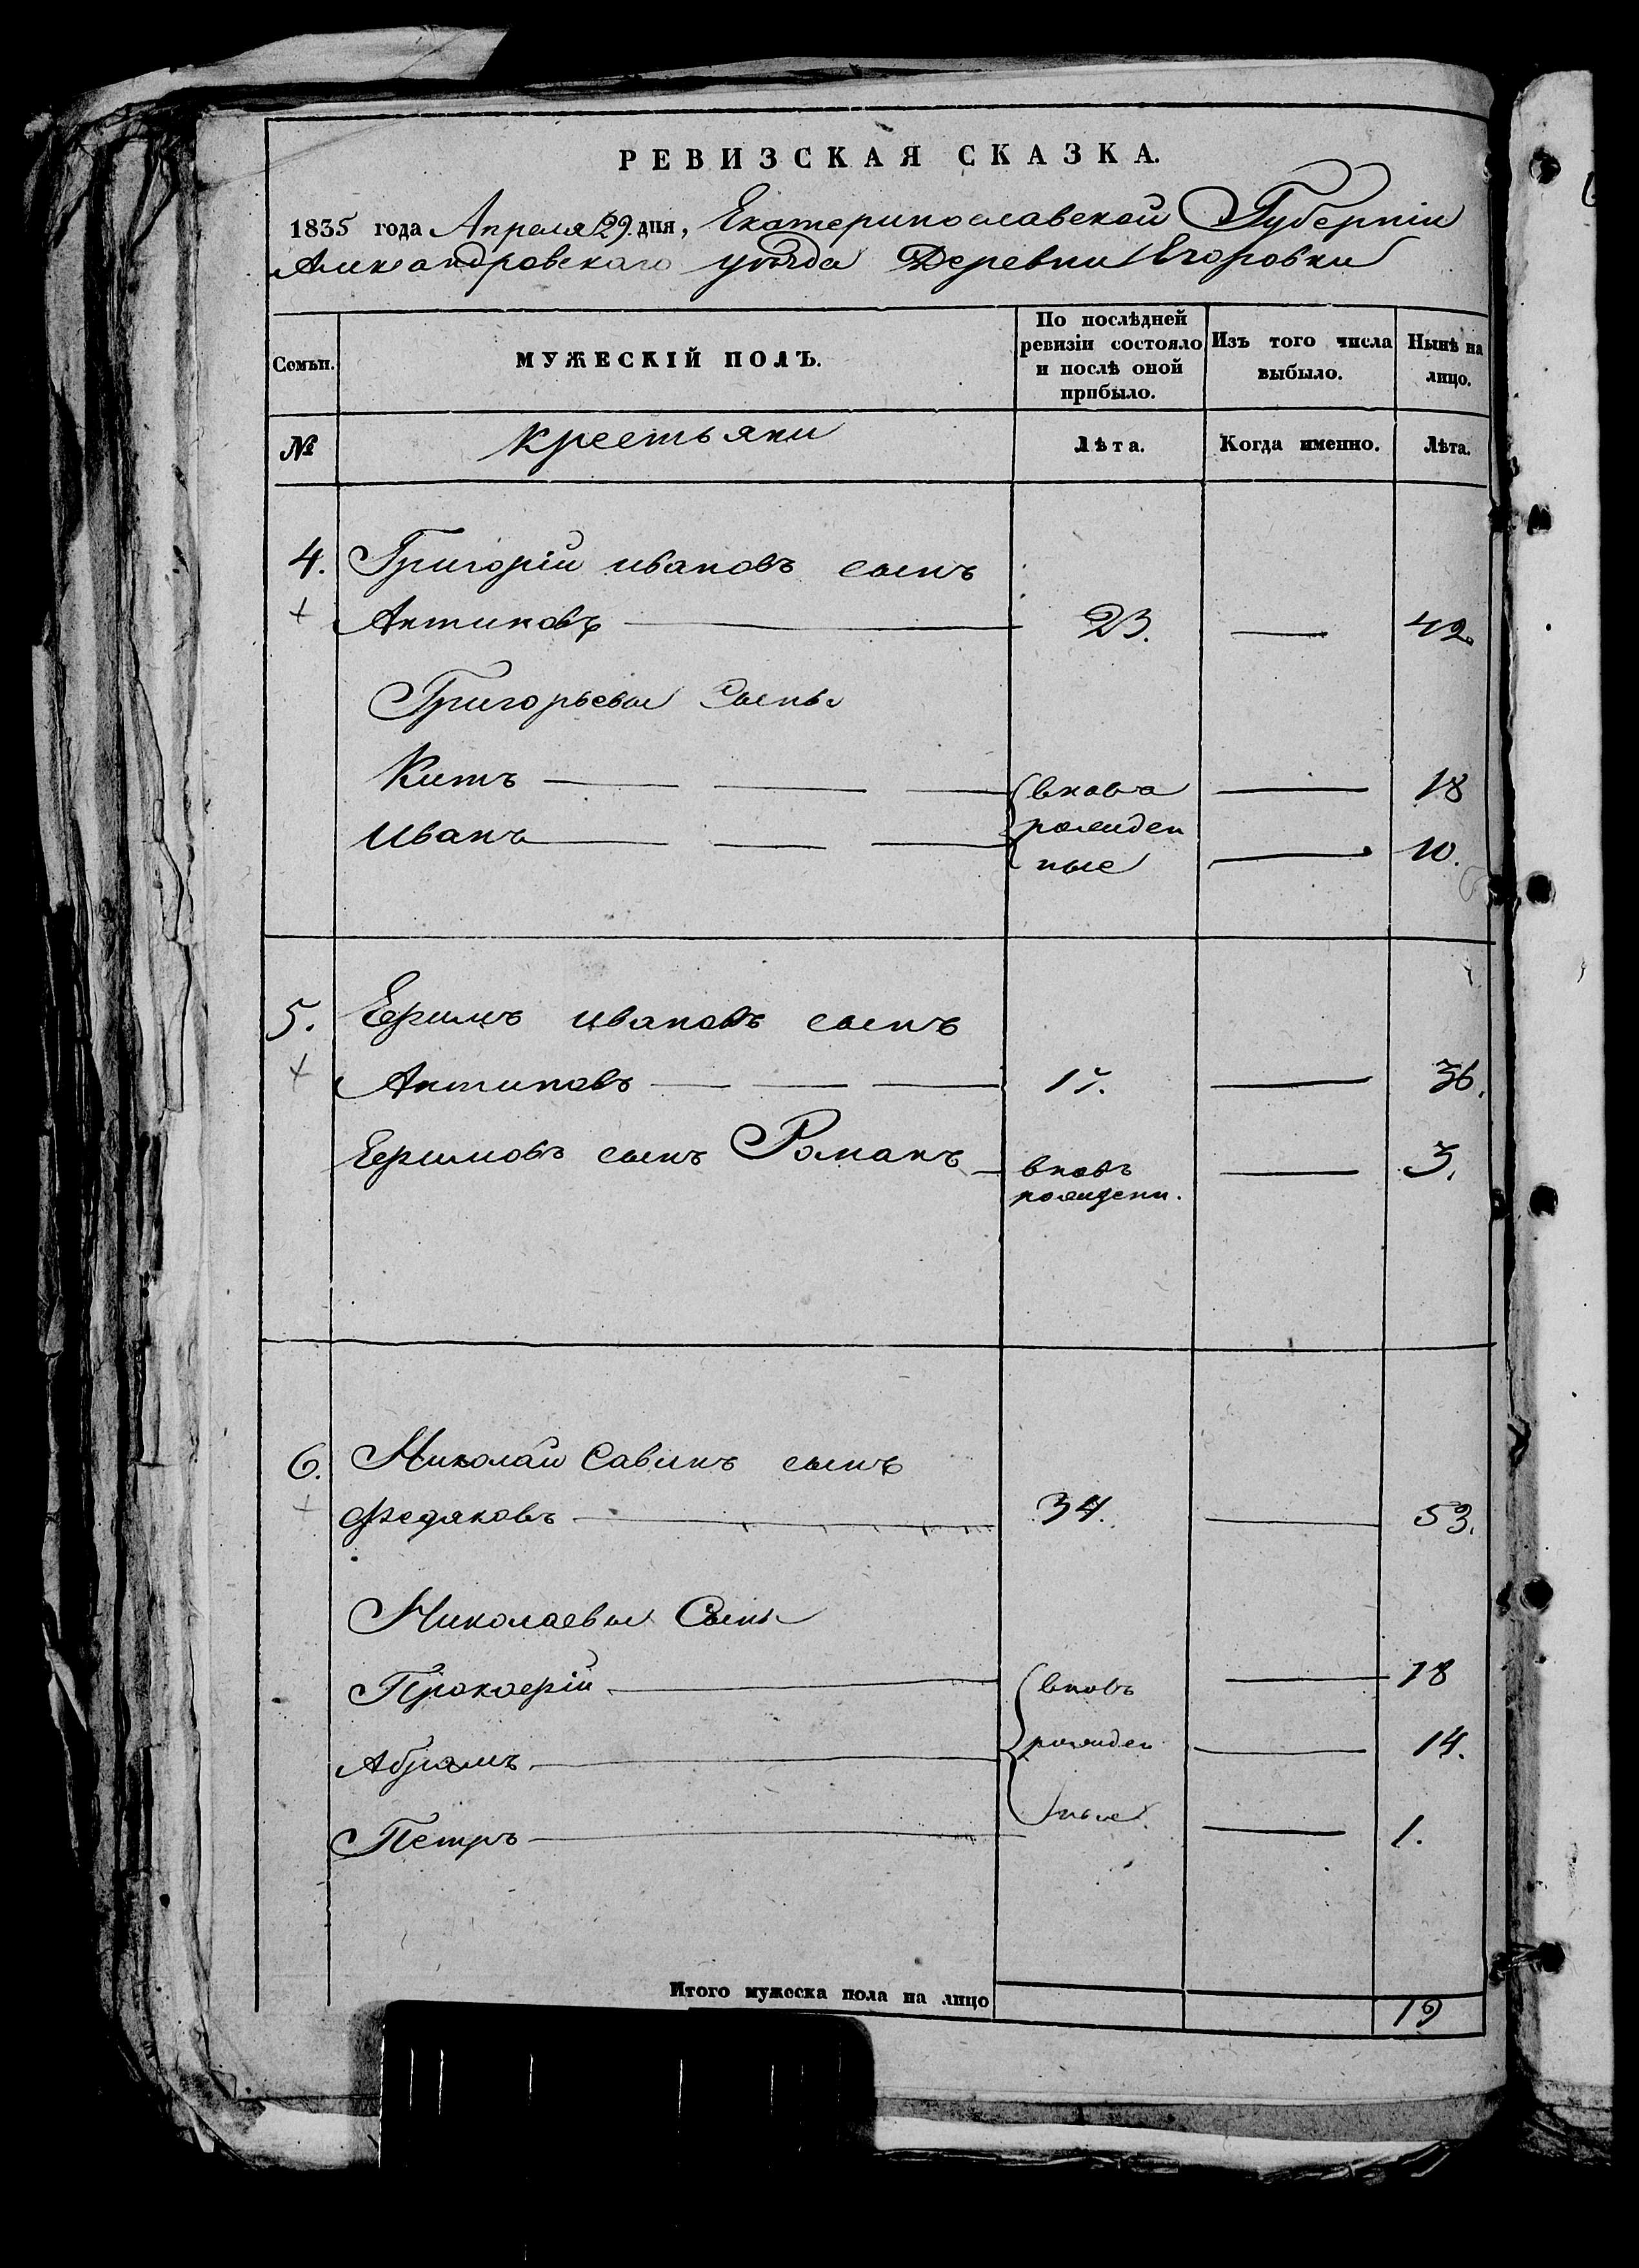 РЕВИЗСКАЯ СКАЗКА.
1835 года Апреля 29. дня, Екатеринославской Губерніи
Александровскаго уѣзда Деревни Егоровки
Семьи. МУЖЕСКІЙ ПОЛЪ. По послѣдней ревизіи состояло и послѣ оной прибыло. Изъ того числа выбыло. Нынѣ на лицо.
№ крестьяни Лѣта. Когда именно. Лѣта.
4. Григорій ивановъ сынъ
Антиповъ 23. 42
Григорьевы Сыны
Китъ вновь 18
рожден
Иванъ ные 10.
5. Ефимъ ивановъ сынъ
Антиповъ 17. 36.
Ефимовъ сынъ Романъ вновь 3.
рожденн.
6. Николай Савинъ сынъ
Федяковъ 34. 53.
Николаевы Сыны
Прокофій вновь 18
Абрамъ рожден 14.
Петръ ные 1.
Итого мужеска пола на лицо 19